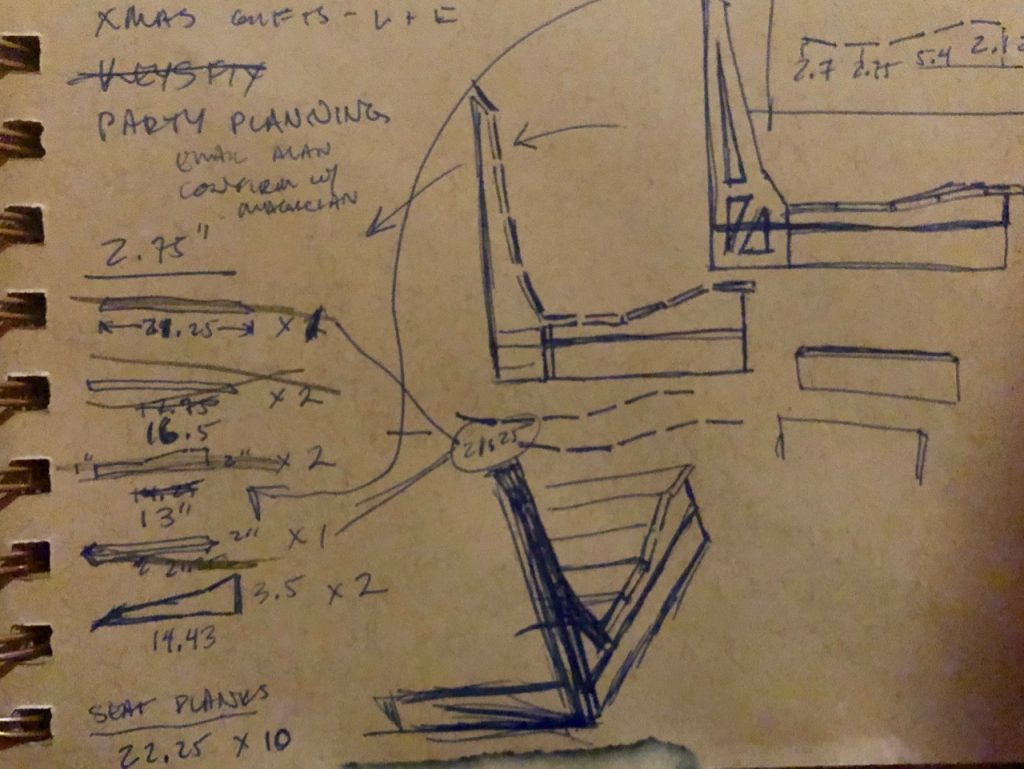 XMAS GIFTS - L + E
PARTY PLANNING
EMAIL ALAN
CONFIRM W/
MAGICIAN
2.75"
21.25 X 1
X 2
16.5
1" 2" X 2
13"
2" X 1
3.5 X 2
14.43
SEAT PLANKS
22.25 X 10
2.7 2.75 5.4 2.12
21.25